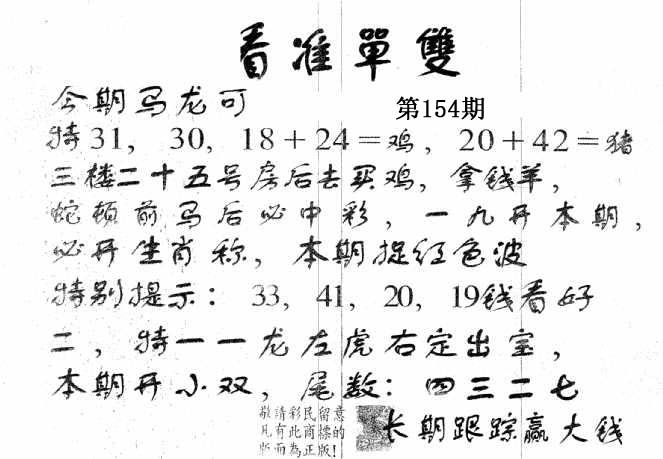 看准單雙
今期马龙可
第154期
特31，30，18＋24＝鸡，20＋42＝猪
三楼二十五号房后去买鸡，拿钱羊，
蛇顿前马后必中彩，一九开本期，
必开生肖称，本期捉红色波
特别提示：33，41，20，19钱看好
二，特一一龙左虎右定出宝，
本期开小双，尾数：四三二七
敬請彩民留意
凡有此商標的
版面為正版！
长期跟踪赢大钱